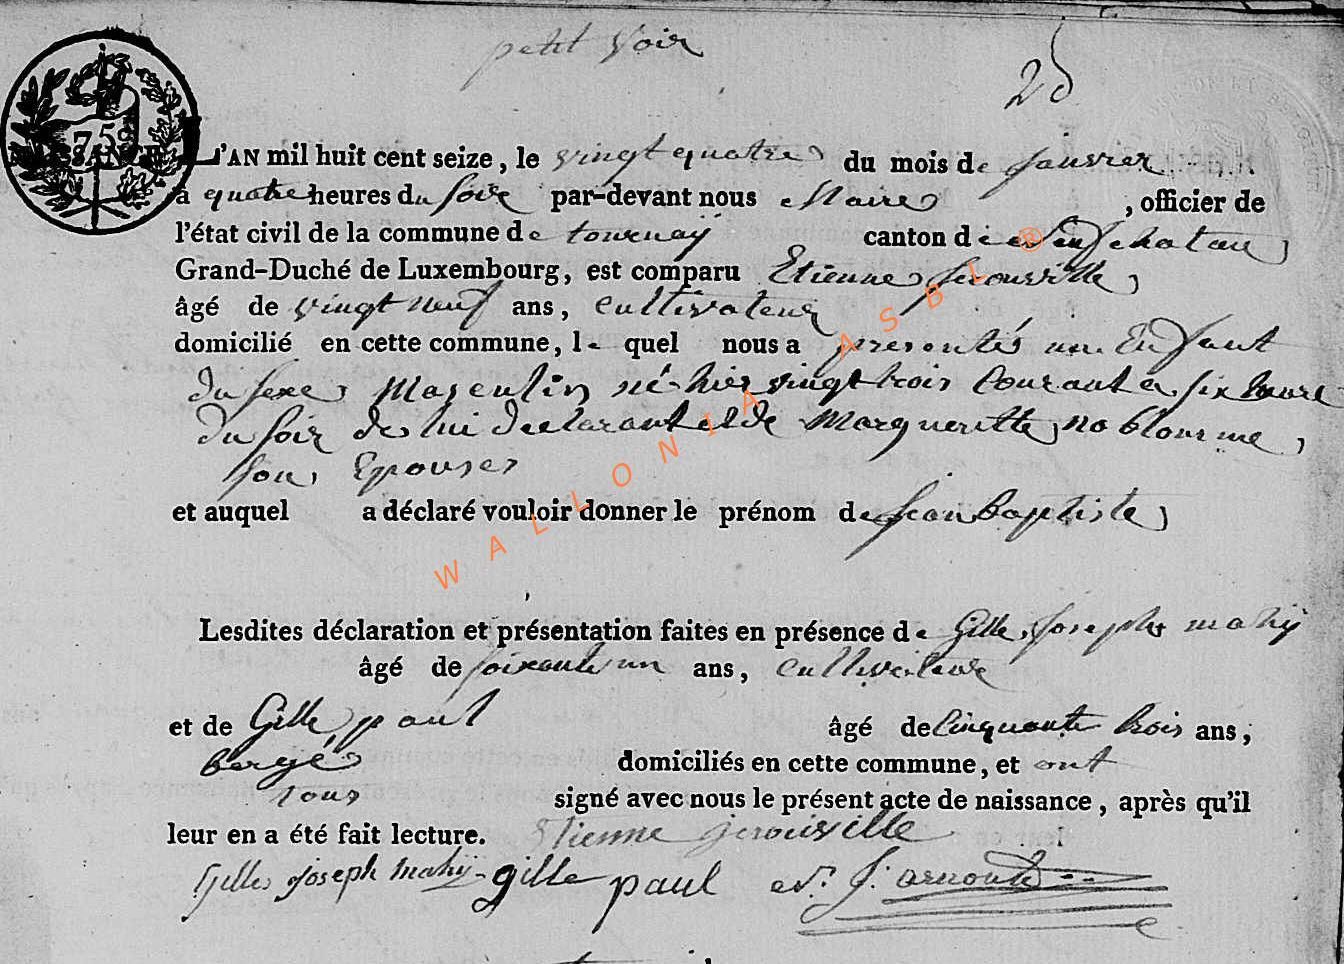 petit Voir
25
75
L'AN mil huit cent seize, le vingt quatre du mois de Janvier
à quatre heures du soir par-devant nous Maire, officier de
l'état civil de la commune de tournaÿ canton de neufchateau,
Grand-Duché de Luxembourg, est comparu Etienne Jerouville,
âgé de vingt neuf ans, cultivateur
domicilié en cette commune, le quel nous a presentés un Enfant
du sexe Masculin né hier vingt trois Courant a six heure
du soir de lui declarant et de Margueritte noblomme,
son Epouse
et auquel a déclaré vouloir donner le prénom de Jean Baptiste,
Lesdites déclaration et présentation faites en présence de Gille Joseph mahÿ
âgé de soixante un ans, cultivateur
et de Gille paul âgé de Cinquante trois ans;
bergé domiciliés en cette commune, et ont
tous signé avec nous le présent acte de naissance, après qu'il
leur en a été fait lecture. Etienne jerouville
Gilles Joseph Mahÿ gille paul J: arnould
WALLONIA ASBL ®